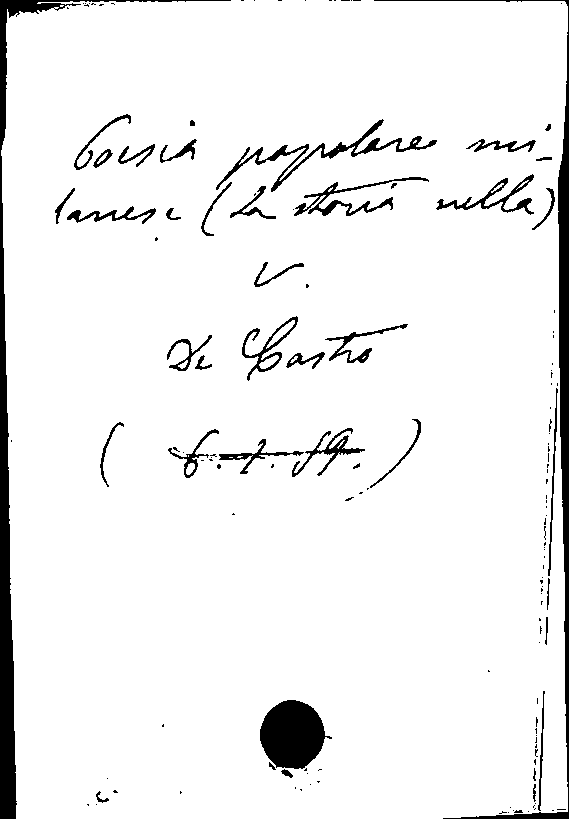 Poesia popolare mi-
lanese (La storia nella)
V.
De Castro
( 6. 1. 59. )